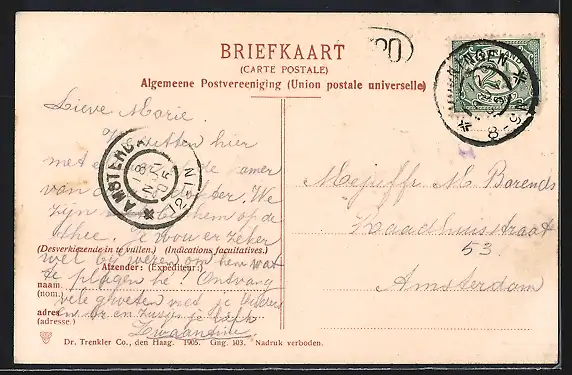 BRIEFKAART
(CARTE POSTALE)
Algemeene Postvereeniging (Union postale universelle)
Lieve Marie.
We zitten hier
met in de kamer
van We
zijn hem op de
thee. Je wou er zeker
wel bij wezen om hem wat
te plagen hè! Ontvang
vele groeten met je
en br. en zusje je
(Desverkiezende in te vullen.) (Indications facultatives.)
Afzender: (Expéditeur:)
naam
(nom.)
adres
(adresse.)
Mejeffr M. Barends
Raadhuisstraat
53.
Amsterdam
AMSTERDAM
12-1N
NINGEN
Dr. Trenkler Co., den Haag. 1905. Gng. 103. Nadruk verboden.